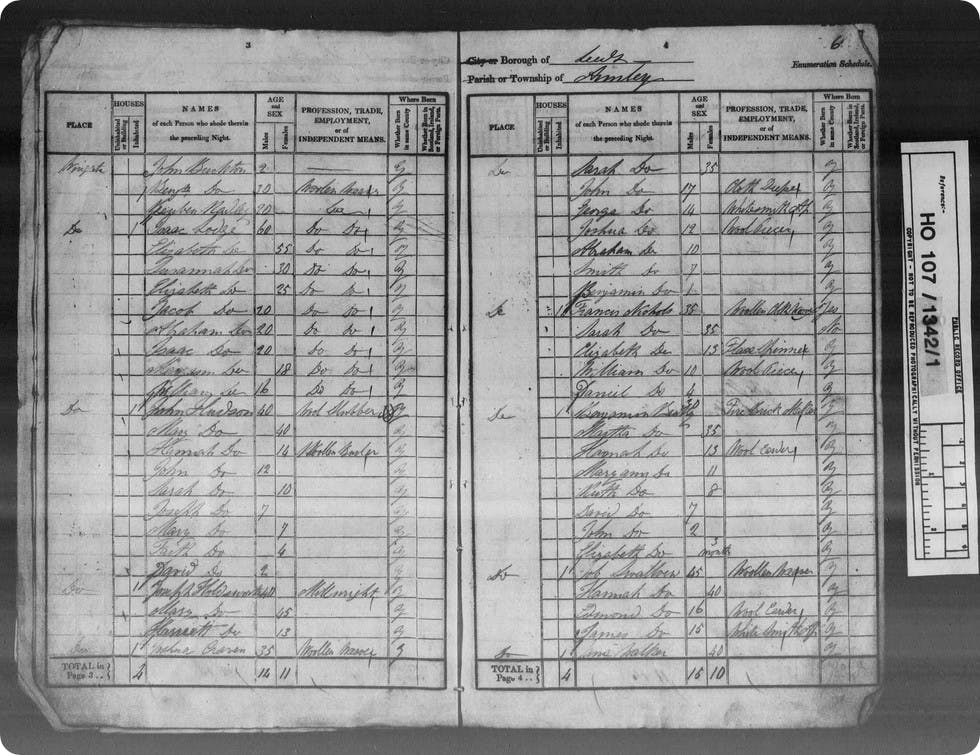 3
PLACE HOUSES Uninhabited or Building Inhabited NAMES of each Person who abode therein the preceding Night. AGE and SEX Males Females PROFESSION, TRADE, EMPLOYMENT, or of INDEPENDENT MEANS. Where Born Whether Born in same County Whether Born in Scotland, Ireland, or Foreign Parts.
John 2 — y
Do 30 Woollen y
Reuben 20 y
Do 1 Isaac 60 Do Do y
Elizabeth Do 55 Do Do y
Susannah Do 30 Do Do y
Elizabeth Do 25 Do Do y
Jacob Do 20 Do Do y
Abraham Do 20 Do Do y
Isaac Do 20 Do Do y
Do 18 Do Do y
William Do 16 Do Do y
Do 1 John 40 Wool Slubber y
Mary Do 40 y
Hannah Do 14 Woollen y
John Do 12 y
Sarah Do 10 y
Joseph Do 7 y
Mary Do 7 y
Do 4 y
David Do 2 y
Do 1 Joseph Millwright y
Mary Do 45 y
Harriett Do 13 y
Do 1 Joshua Craven 35 Woollen Weaver y
TOTAL in Page 3 .. 4 14 11
4
6
City or Borough of Leeds
Parish or Township of Armley
Enumeration Schedule.
PLACE HOUSES Uninhabited or Building Inhabited NAMES of each Person who abode therein the preceding Night. AGE and SEX Males Females PROFESSION, TRADE, EMPLOYMENT, or of INDEPENDENT MEANS. Where Born Whether Born in same County Whether Born in Scotland, Ireland, or Foreign Parts.
Do Sarah Do 35 y
John Do 17 Cloth y
George Do 14 Whitesmith y
Joshua Do 12 Wool Piecer y
Abraham Do 10 y
Smith Do 7 y
Benjamin Do 1 y
Do 1 Francis Nichols 35 Woollen Cloth Yes
Sarah Do 35 No
Elizabeth Do 13 Flax Spinner y
William Do 10 Wool Piecer y
Daniel Do 4 y
Do 1 Benjamin 30 Fire Brick Maker y
Martha Do 35 y
Hannah Do 13 Wool Carder y
Mary ann Do 11 y
Ruth Do 8 y
David Do 7 y
John Do 2 y
Elizabeth Do 3 month y
Do 1 Job 45 Woollen Weaver y
Hannah Do 40 y
Edmond Do 16 Wool Carder y
James Do 15 White Smith y
Do 1 Walker 40 y
TOTAL in Page 4 .. 4 15 10
Reference:-
HO 107 / 1342/1
PUBLIC RECORD OFFICE
COPYRIGHT - NOT TO BE REPRODUCED PHOTOGRAPHICALLY WITHOUT PERMISSION